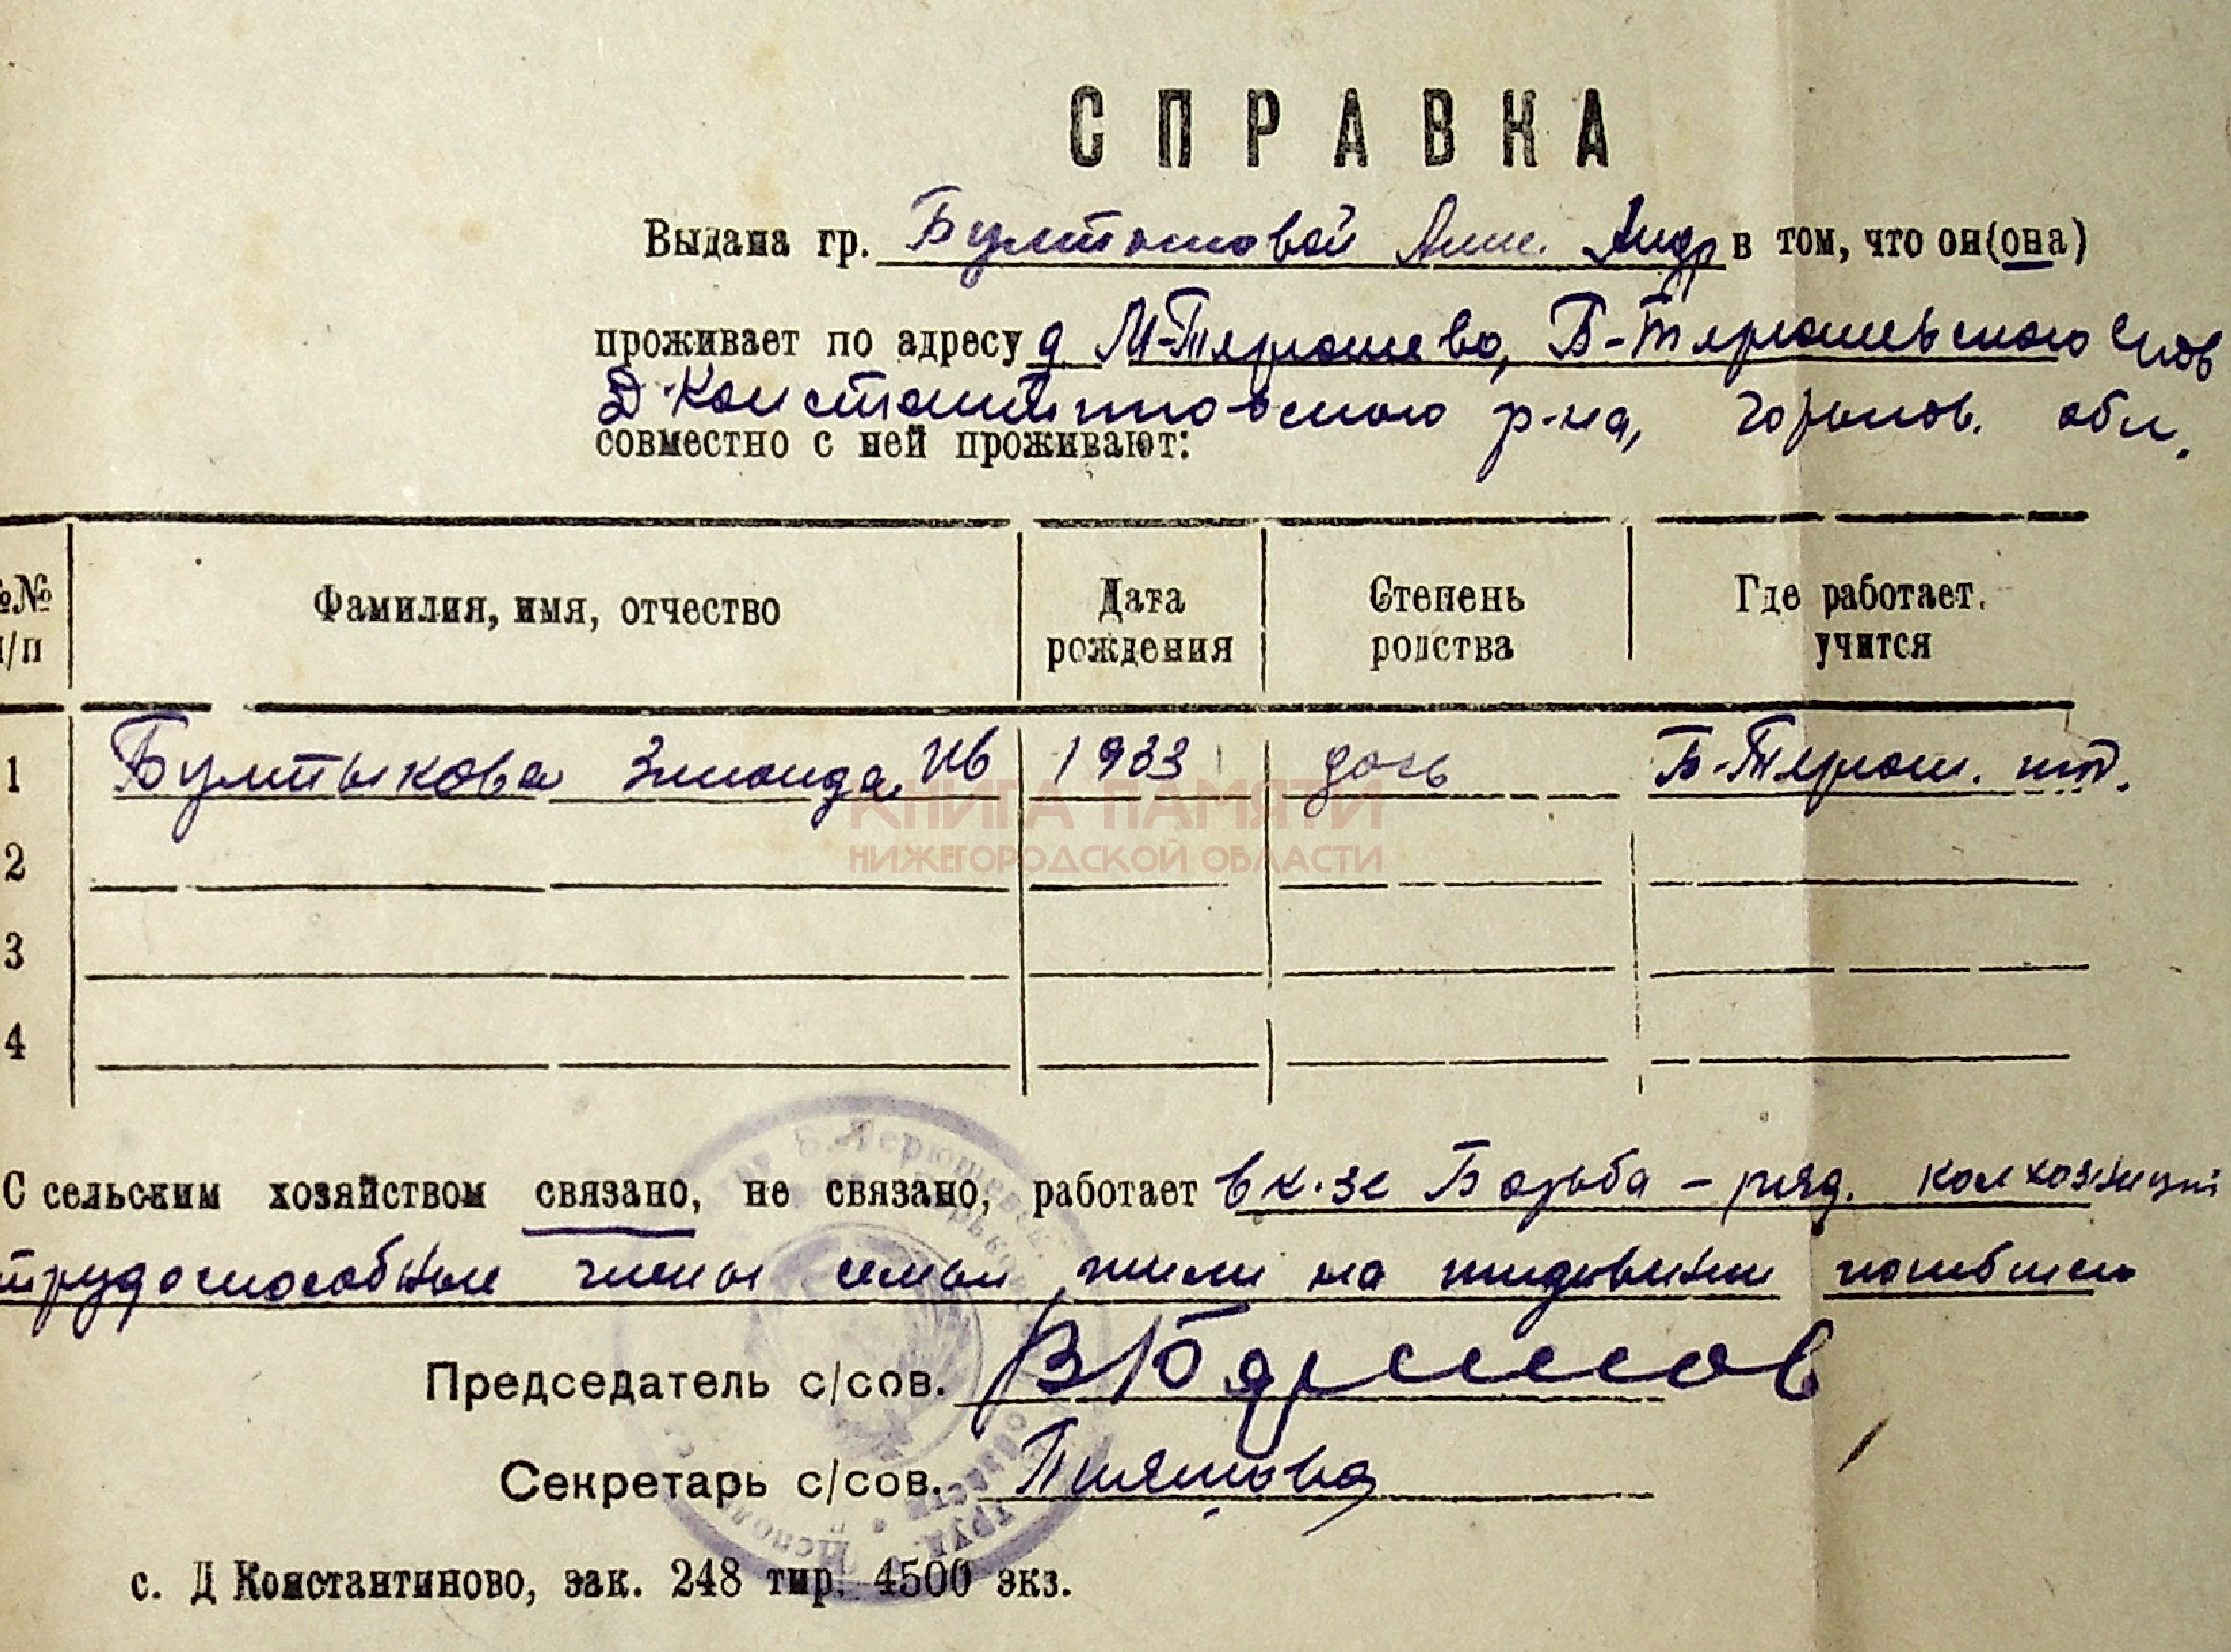 СПРАВКА
Выдана гр. Булыгиновой Анне Андр в том, что он(она)
проживает по адресу д М-Терюшево, Б-Терюшевского с/сов
Д-Константиновского р-на, Горьков. обл.
совместно с ней проживают:
№№ п/п Фамилия, имя, отчество Дата рождения Степень родства Где работает, учится
1 Бултыкова Зинаида Ив 1933 дочь Б-Терюш.
2
3
4
КНИГА ПАМЯТИ
НИЖЕГОРОДСКОЙ ОБЛАСТИ
С сельским хозяйством связано, не связано, работает в к-зе Борьба - ряд. колхозницей
трудоспособные члены семьи жили на иждивении погибшего
Председатель с/сов.
Секретарь с/сов.
с. Д Константиново, зак. 248 тир. 4500 экз.